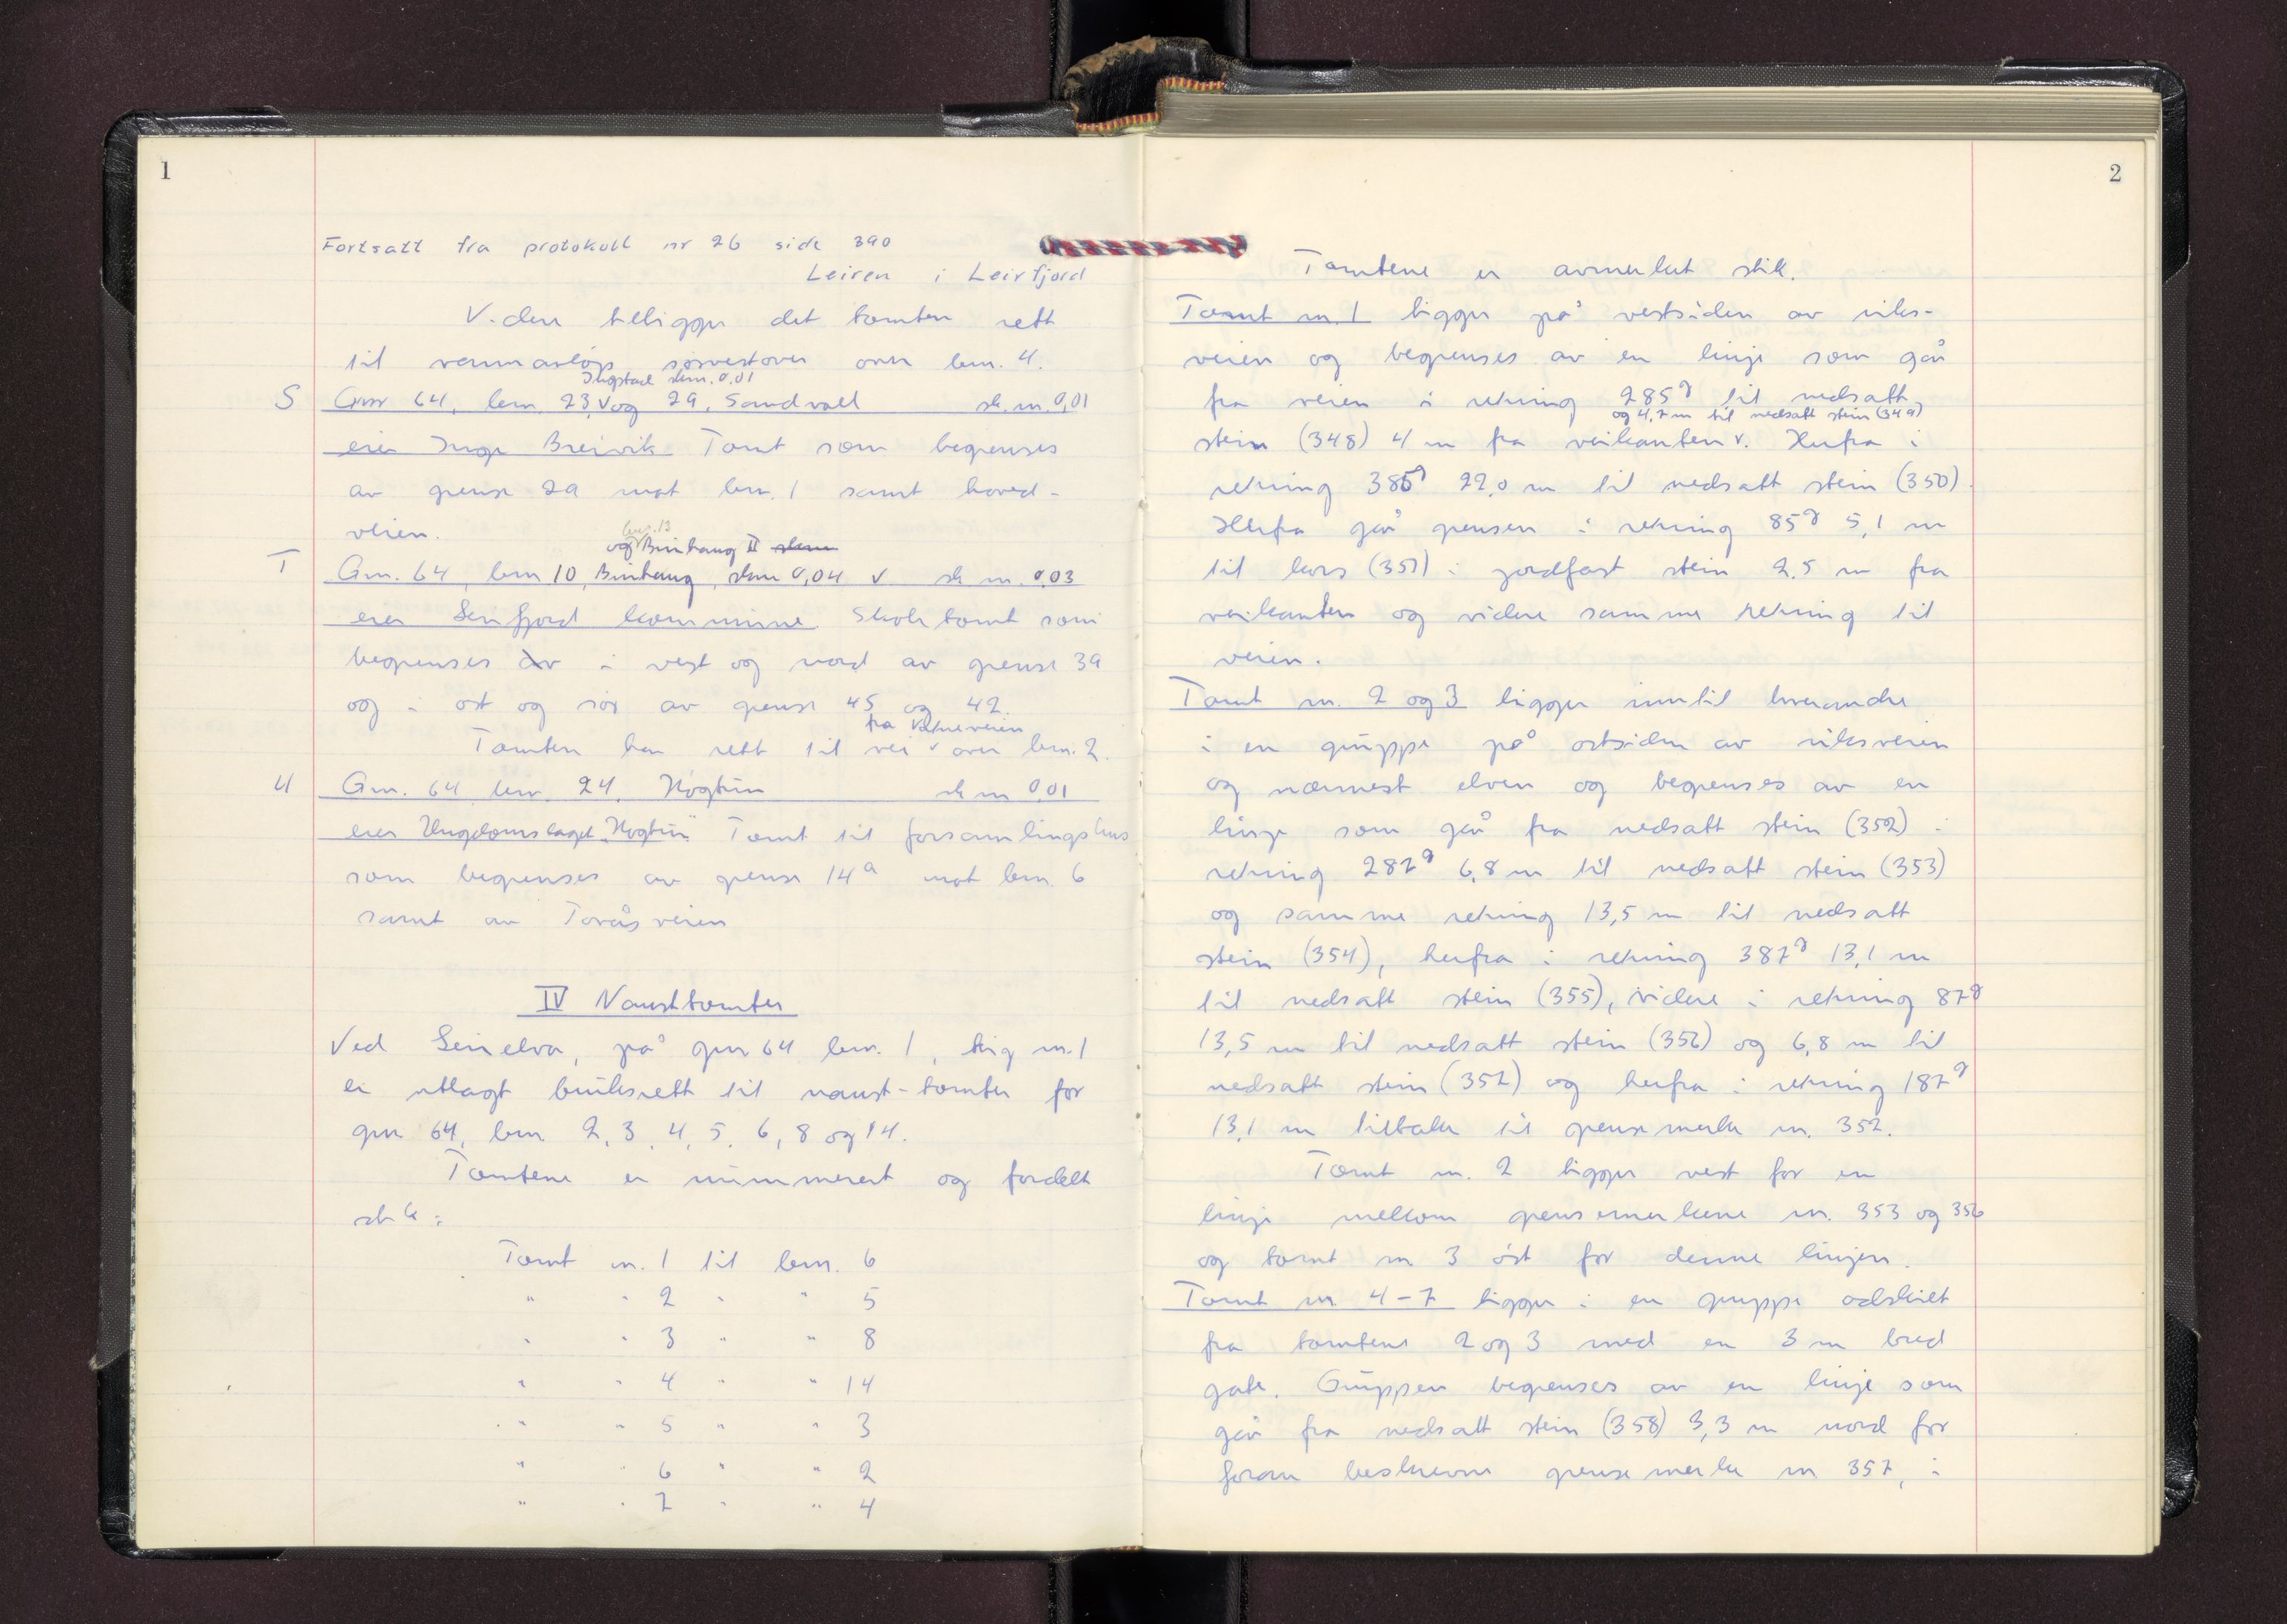 1
Fortsatt fra protokoll nr 26 side 390
Leiren i Leirfjord
Videre tilligger det tomten rett
til vannavløp sørvestover over bnr. 4.
Ingstad skm. 0,01
S Gnr 64, bnr. 23, v og 29, Sandvoll sk.m. 0,01
eier Inge Breivik Tomt som begrenses
av grense 29 mot bnr. 1 samt hoved-
veien.
bnr. 13
og Binhaug II skm
T Gnr. 64, bnr 10, Binhaug, skm 0,04 v sk m. 0,03
eier Leirfjord kommune Skoletomt som
begrenses av i vest og nord av grense 39
og i ost og sør av grense 45 og 42.
fra
Tomten har rett til vei v over bnr. 2.
U Gnr. 64 bnr. 24. Høgtun sk m 0,01
eier Ungdomslaget "Høgtun" Tomt til forsamlingshus
som begrenses av grense 14a mot bnr. 6
samt av Toråsveien
IV Nausttomter
Ved Leirelva, på gnr 64 bnr. 1, teig nr. 1
er utlagt bruksrett til naust-tomter for
gnr 64, bnr. 2, 3, 4, 5, 6, 8 og 14.
Tomtene er nummerert og fordelt
slik:
Tomt nr. 1 til bnr. 6
" " 2 " " 5
" " 3 " " 8
" " 4 " " 14
" " 5 " " 3
" " 6 " " 2
" " 7 " " 4
2
Tomtene er avmerket slik.
Tomt nr. 1 ligger på vestsiden av riks-
veien og begrenses av en linje som går
fra veien i retning 285g til nedsatt
og 4,7 m til nedsatt stein (349)
stein (348) 4 m fra veikanten v. Herfra i
retning 385g 22,0 m til nedsatt stein (350).
Herfra går grensen i retning 85g 5,1 m
til kors (351) i jordfast stein 2,5 m fra
veikanten og videre samme retning til
veien.
Tomt nr. 2 og 3 ligger inntil hverandre
i en gruppe på ostsiden av riksveien
og nærmest elven og begrenses av en
linje som går fra nedsatt stein (352) i
retning 287g 6,8 m til nedsatt stein (353)
og samme retning 13,5 m til nedsatt
stein (354), herfra i retning 387g 13,1 m
til nedsatt stein (355), videre i retning 87g
13,5 m til nedsatt stein (356) og 6,8 m til
nedsatt stein (357) og herfra i retning 187g
13,1 m tilbake til grensemerke nr. 352.
Tomt nr. 2 ligger vest for en
linje mellom grensemerkene nr. 353 og 356
og tomt nr 3 øst for denne linjen.
Tomt nr. 4-7 ligger i en gruppe adskilt
fra tomtene 2 og 3 med en 3 m bred
gate. Gruppen begrenses av en linje som
går fra nedsatt stein (358) 3,3 m nord for
foran beskrevne grensemerke nr 357, i